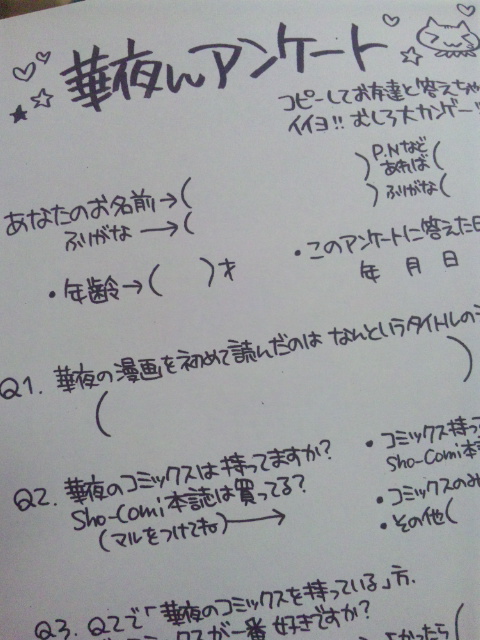 華夜んアンケート
コピーしてお友達と答えちゃ
イイヨ!! むしろ大カンゲー!!
あなたのお名前→( ) P.Nなど あれば(
ふりがな→( ) ふりがな(
・年齢→( )才
・このアンケートに答えた日
年 月 日
Q1. 華夜の漫画を初めて読んだのは なんというタイトルの
( )
Q2. 華夜のコミックスは持ってますか?
Sho-Comi本誌は買ってる?
(マルをつけてね)→
・コミックス持っ
Sho-Comi本
・コミックスのみ
・その他(
Q3. Q2で「華夜のコミックスを持っている」方.
コミックスが一番 好きですか?
かったら(